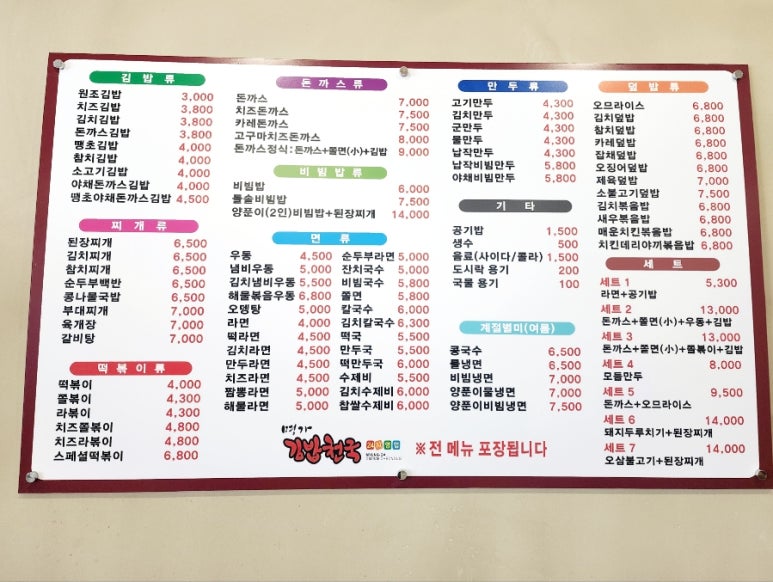 김 밥 류
원조김밥 3,000
치즈김밥 3,800
김치김밥 3,800
돈까스김밥 3,800
땡초김밥 4,000
참치김밥 4,000
소고기김밥 4,000
야채돈까스김밥 4,000
땡초야채돈까스김밥 4,500
찌 개 류
된장찌개 6,500
김치찌개 6,500
참치찌개 6,500
순두부백반 6,500
콩나물국밥 6,500
부대찌개 7,000
육개장 7,000
갈비탕 7,000
떡 볶 이 류
떡볶이 4,000
쫄볶이 4,300
라볶이 4,300
치즈쫄볶이 4,800
치즈라볶이 4,800
스페셜떡볶이 6,800
돈 까 스 류
돈까스 7,000
치즈돈까스 7,500
카레돈까스 7,500
고구마치즈돈까스 8,000
돈까스정식:돈까스+쫄면(小)+김밥 9,000
비 빔 밥 류
비빔밥 6,000
돌솥비빔밥 7,500
양푼이(2인)비빔밥+된장찌개 14,000
면 류
우동 4,500 순두부라면 5,000
냄비우동 5,000 잔치국수 5,000
김치냄비우동 5,500 비빔국수 5,800
해물볶음우동 6,800 쫄면 5,800
오뎅탕 5,000 칼국수 6,000
라면 4,000 김치칼국수 6,300
떡라면 4,500 떡국 5,500
김치라면 4,500 만두국 5,500
만두라면 4,500 떡만두국 6,000
치즈라면 4,500 수제비 5,500
짬뽕라면 5,000 김치수제비 6,000
해물라면 5,000 찹쌀수제비 6,000
김밥천국
※전 메뉴 포장됩니다
만 두 류
고기만두 4,300
김치만두 4,300
군만두 4,300
물만두 4,300
납작만두 4,300
납작비빔만두 5,800
야채비빔만두 5,800
기 타
공기밥 1,500
생수 500
음료(사이다/콜라) 1,500
도시락 용기 200
국물 용기 100
계절별미(여름)
콩국수 6,500
물냉면 6,500
비빔냉면 7,000
양푼이물냉면 7,000
양푼이비빔냉면 7,500
덮 밥 류
오므라이스 6,800
김치덮밥 6,800
참치덮밥 6,800
카레덮밥 6,800
잡채덮밥 6,800
오징어덮밥 6,800
제육덮밥 7,000
소불고기덮밥 7,500
김치볶음밥 6,800
새우볶음밥 6,800
매운치킨볶음밥 6,800
치킨데리야끼볶음밥 6,800
세 트
세트 1 5,300
라면+공기밥
세트 2 13,000
돈까스+쫄면(小)+우동+김밥
세트 3 13,000
돈까스+쫄면(小)+쫄볶이+김밥
세트 4 8,000
모듬만두
세트 5 9,500
돈까스+오므라이스
세트 6 14,000
돼지두루치기+된장찌개
세트 7 14,000
오삼불고기+된장찌개